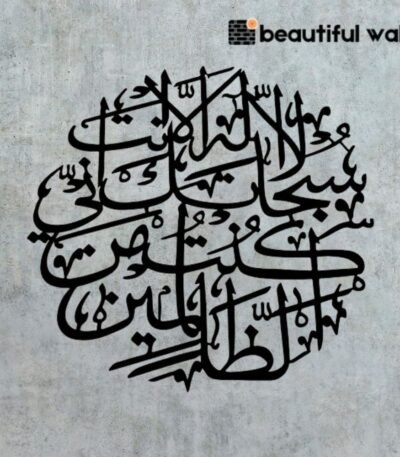 beautiful wal
لا إله إلا أنت
سبحانك إني
كنت من
الظالمين